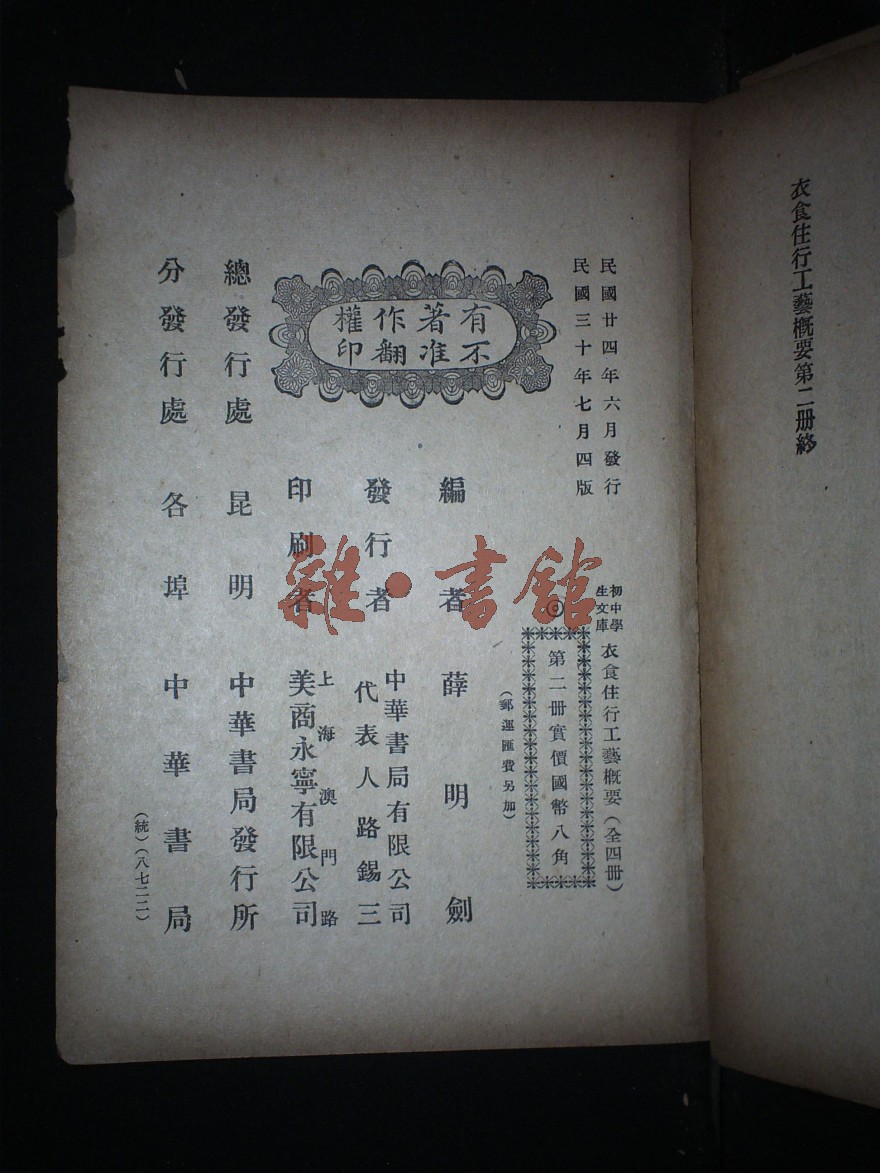 衣食住行工藝概要第二册終
民國廿四年六月發行
民國三十年七月四版
初中學
生文庫
衣食住行工藝概要（全四冊）
◎
第二冊實價國幣八角
（郵運匯費另加）
有著作權
不准翻印
編者 薛明劍
發行者 中華書局有限公司
代表人路錫三
印刷者 上海澳門路
美商永寧有限公司
總發行處 昆明 中華書局發行所
分發行處 各埠 中華書局
（統）（八七二二）
雜·書館